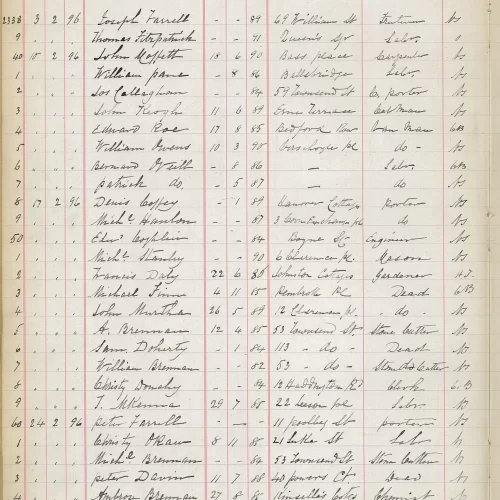 2338 3 2 96 Joseph Farrell - - 89 69 William St
9 Thomas Fitzpatrick - - 71 Queen's Sq Labr
40 10 2 96 John Moffett 18 6 90 Bass place Carpenter
1 William pane - 8 86 Ballsbridge Labr
2 Jos Callaghan - - 84 59 Townsend St porter
3 John Keogh 11 6 89 Erne Terrace
4 Edward Roe 17 8 85 Bedford Row Van Man
5 William Owens 10 3 90 pl do
6 Bernard O'Neill - 8 86 Labr
7 patrick do - 5 87
8 17 2 96 Denis Coffey - 1 89 Hanover Cottage porter
9 Michl Hanlon - - 87 3 Corn Exchange pl do
50 Edwd Coghlin - - 84 Boyne St Engineer
1 Michl Stanley - - 90 6 Clarence pl Mason
2 Francis Daly 22 6 80 Johnston Cottages Gardener
3 Michael Finn 4 11 15 Pembroke Rd Dead
4 John Murtha 26 5 89 12 Clarence pl do
5 A. Brennan 12 4 85 53 Townsend St Stone Cutter
6 Saml Doherty - 1 84 113 do Dead
7 William Brennan - - 82 53 do Stone Cutter
8 Christy - - 84 12 Haddington Rd Clerk
9 T. McKenna 29 7 85 22 Leeson pl Labr
60 24 2 96 peter Farrell - - - 11 poolbeg St porter
1 Christy 8 11 88 21 Luke St Lab
2 Michl Brennan - - 84 53 Townsend St Stone Cutter
3 peter Davin 11 7 88 Ct Dead
4 Ambrose Brennan 27 8 Kinsella's Cotts Chemist